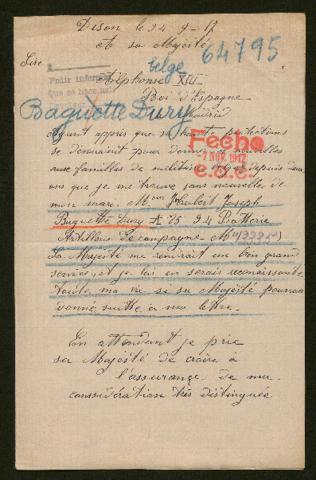 Dison le 24-9-17
A sa Majesté
Sire
64795
Belge
Pour infor
Que se hace
Alphonse XIII
Roi d'Espagne
Madrid
Baguette Dury
Ayant appris que sa haute
se dévouait pour donner nouvelles
aux familles de militaires depuis deux
ans que je me trouve sans nouvelle de
mon mari. Mr Hubert Joseph
Fecha
-7 NOV. 1917
Baguette Dury A 75 34 Batterie
Artillerie de campagne
Sa Majesté me rendrait un bien grand
service, et je lui en serais reconnaissante
toute ma vie si sa Majesté pourrait
donné suitte a ma lettre.
En attendant je prie
sa Majesté de croire à
l'assurance de ma
considération très distinguée